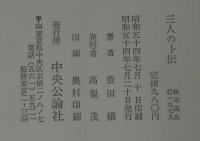 三人のト伝
定価九八〇円
昭和五十四年七月十日印刷
昭和五十四年七月二十日発行
著者 豊田穣
発行者 高梨茂
印刷 奥村印刷
発行所 中央公論社
〒104 東京都中央区京橋二ノ八ノ七
電話(五六一)五九二一
振替東京二-三四
検印廃止
©一九七九